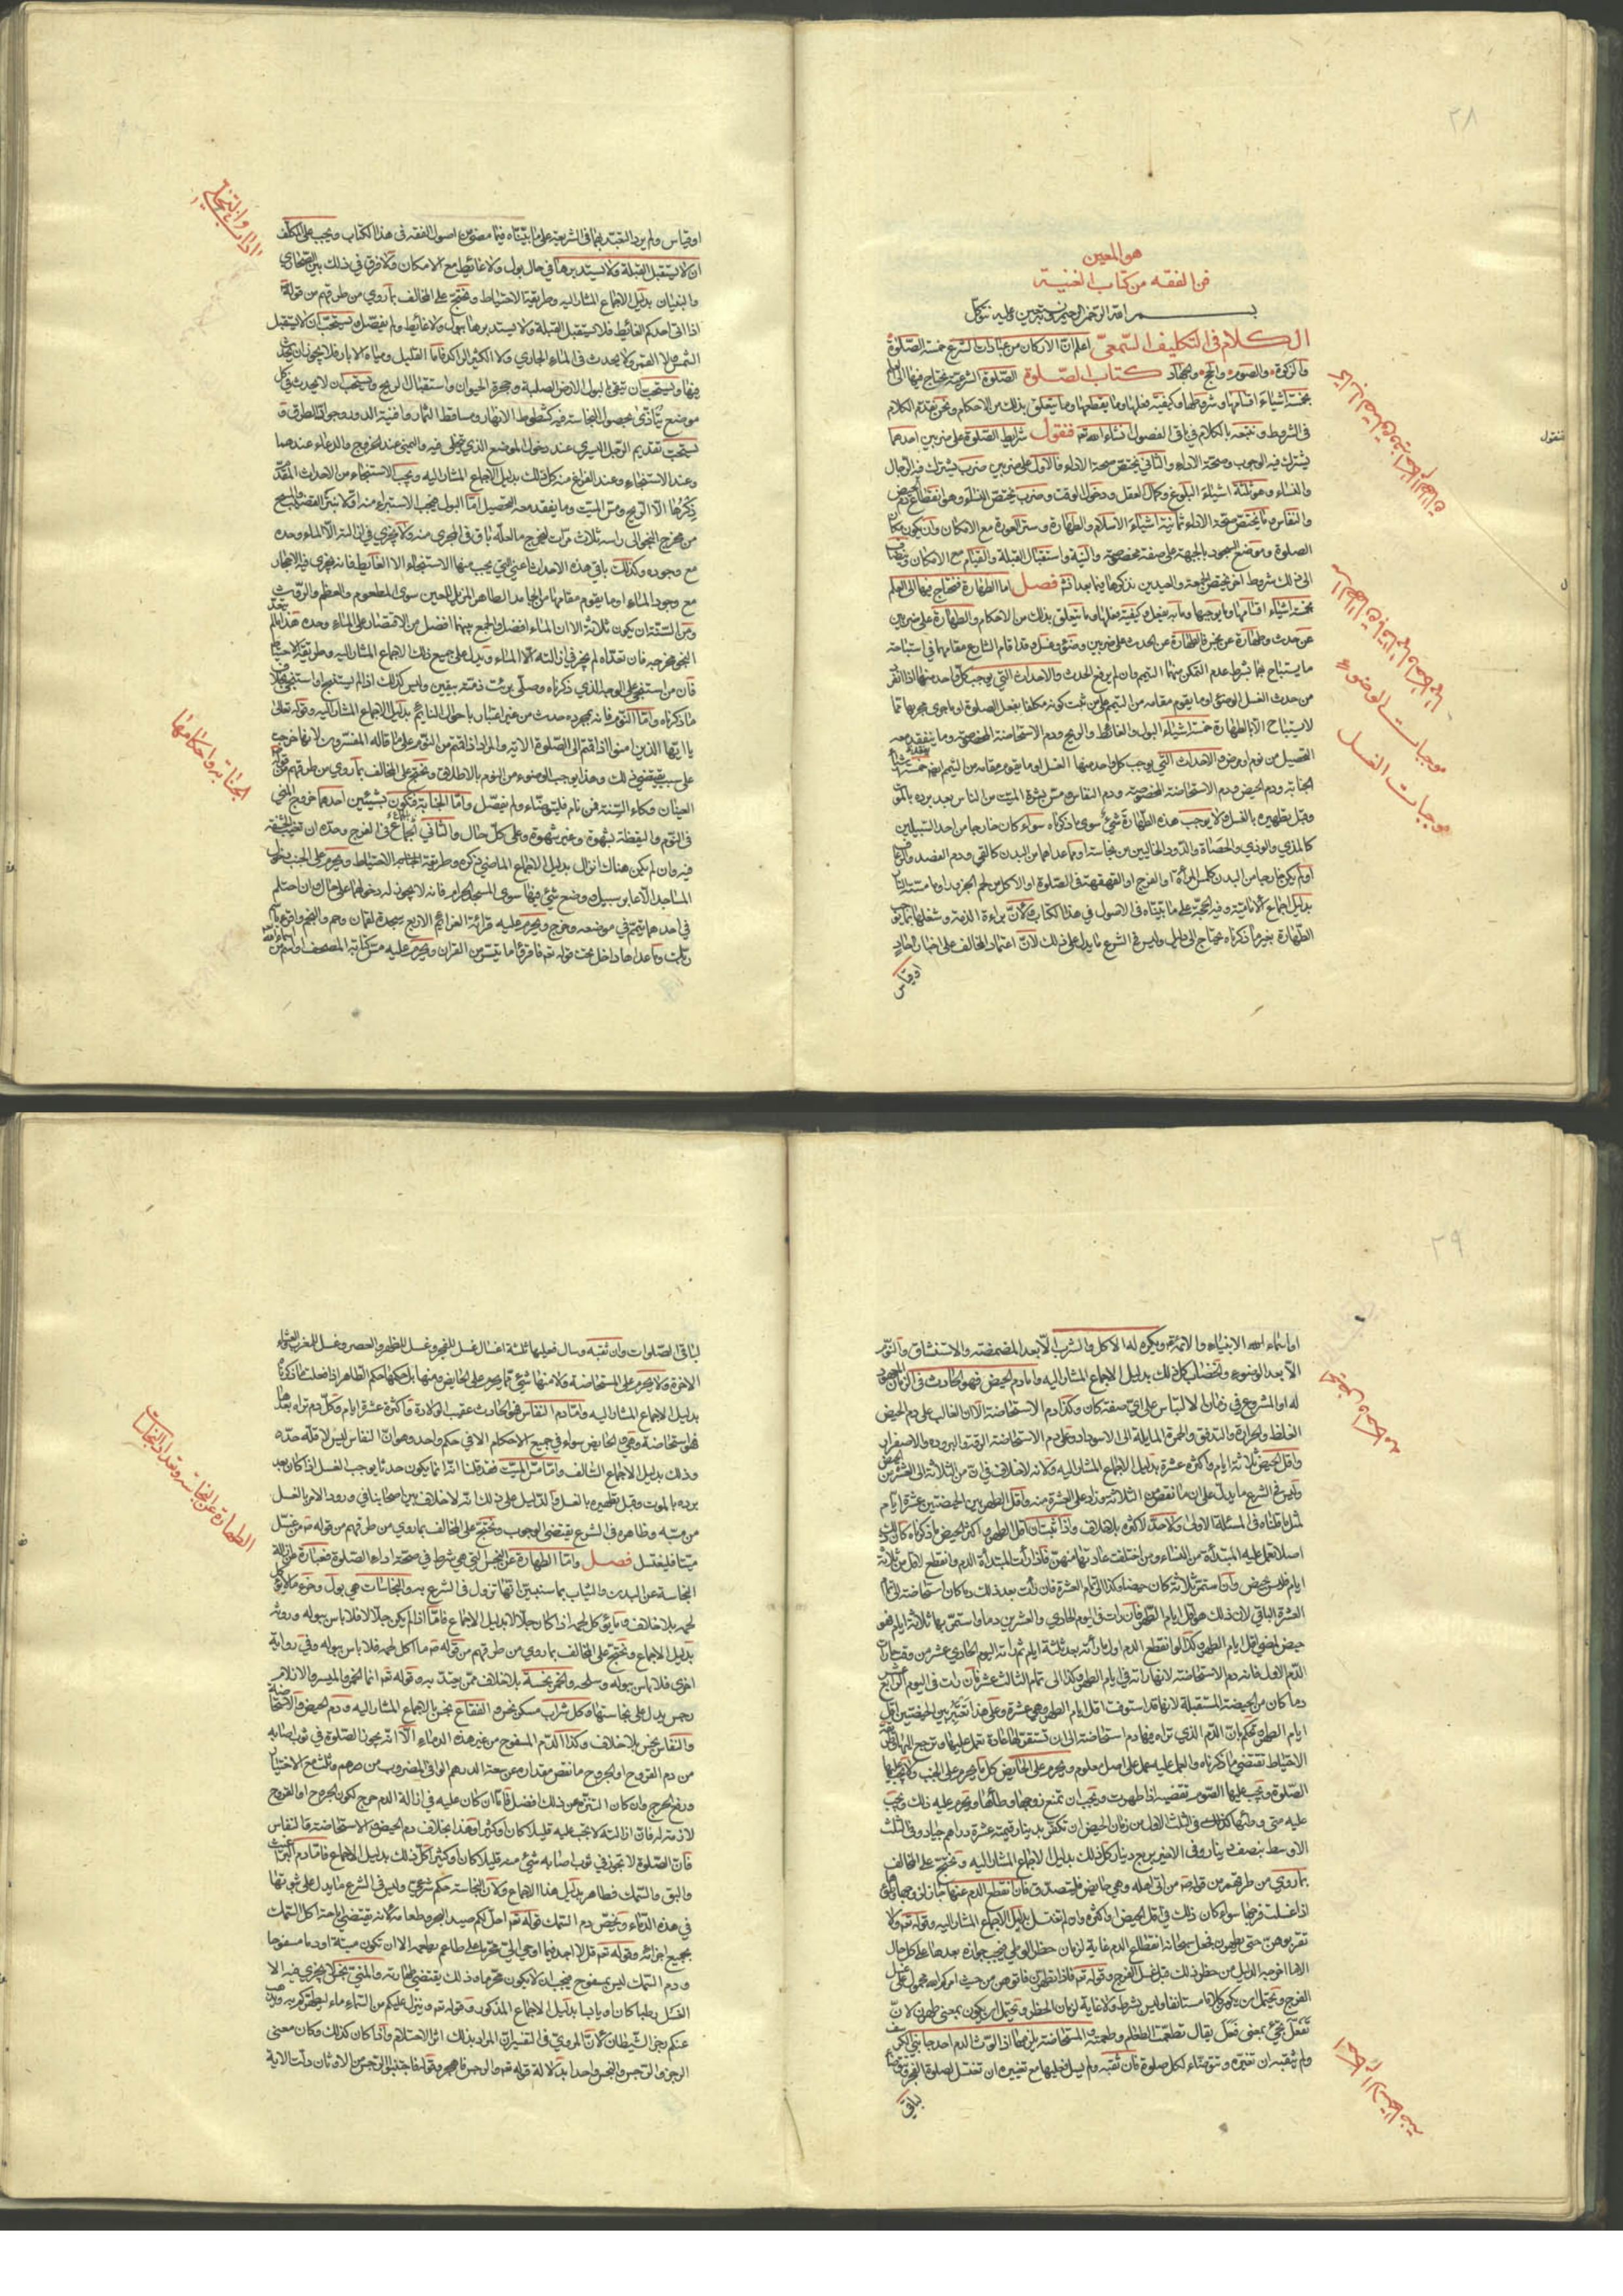 ٢٨
هو المعين
فن الفقه من كتاب الغنية
بسم الله الرحمن الرحيم وبه نستعين وعليه نتوكل
الكلام في التكليف السمعي اعلم ان الاركان من عبادات الشرع خمسة الصلوة
والزكوة والصوم والحج والجهاد كتاب الصلوة الصلوة الشرعية يحتاج فيها الى العلم
بخمسة اشياء اقسامها وشروطها وكيفية فعلها وما يقطعها وما يتعلق بذلك من الاحكام ونحن نقدم الكلام
في الشروط ونتبعه بالكلام في باقي الفصول انشاء الله تع فنقول شرايط الصلوة على ضربين احدهما
يشترك فيه الوجوب وصحة الاداء والثاني يختص صحة الاداء فالاول على ضربين ضرب يشترك فيه الرجال
والنساء وهو ثلثة اشياء البلوغ وكمال العقل ودخول الوقت وضرب يختص النساء وهو انقطاع دم الحيض
والنفاس وما يختص صحة الاداء ثمانية اشياء الاسلام والطهارة وستر العورة مع الامكان وان يكون مكان
الصلوة وموضع السجود بالجبهة على صفة مخصوصة والنية واستقبال القبلة والقيام مع الامكان
الى ذلك شروط اخر يختص الجمعة والعيدين نذكرها فيما بعد انشه فصل اما الطهارة فيحتاج فيها الى العلم
بخمسة اشياء اقسامها وما يوجبها وما به يفعل وكيفية فعلها وما يتعلق بذلك من الاحكام والطهارة على ضربين
عن حدث وطهارة عن نجس فالطهارة عن الحدث على ضربين وضوء وغسل وقد اقام الشارع مقامهما في استباحة
ما يستباح بهما بشرط عدم التمكن منهما التيمم وان لم يرفع الحدث والاحداث التي يوجب كل واحد منها اذا انفرد
من حدث الغسل الوضوء او ما يقوم مقامه من التيمم على من ثبت كونه مكلفا بفعل الصلوة او ما جرى مجراها مما
لا يستباح الا بالطهارة خمسة اشياء البول والغائط والريح ودم الاستحاضة المخصوصة وما يفقد معه
التحصيل من نوم او مرض والاحداث التي يوجب كل واحد منها الغسل او ما يقوم مقامه من التيمم ايضا خمسة اشياء
الجنابة ودم الحيض ودم الاستحاضة المخصوصة ودم النفاس ومس بشرة الميت من الناس بعد برده بالموت
وقبل تطهيره بالغسل ولا يوجب هذه الطهارة شيء سوى ما ذكرناه سواء كان خارجا من احد السبيلين
كالمذي والوذي والحصاة والدود الخاليين من نجاسة او مما عداهما من البدن كالقيء ودم الفصد والرعاف
او لم يكن خارجا من البدن كلمس المرأة والفرج او القهقهة في الصلوة او الاكل من لحم الجزور او ما مسته النار
بدليل اجماع الامامية وفيه الحجة على ما بيناه في الاصول في هذا الكتاب ولان براءة الذمة وشغلها بما يوجب
الطهارة بغير ما ذكرناه محتاج الى دليل وليس في الشرع ما يدل على ذلك لان اعتماد المخالف على اخبار احاد
او قياس
موجبات الوضوء
موجبات الغسل
فنقول
او قياس ولم يرد التعبد بهما في الشريعة على ما بيناه فيما مضى من اصول الفقه في هذا الكتاب ويجب على المكلف
ان لا يستقبل القبلة ولا يستدبرها في حال بول ولا غائط مع الامكان ولا فرق في ذلك بين الصحاري
والبنيان بدليل الاجماع المشار اليه وطريقة الاحتياط ونحتج على المخالف بما روي من طرقهم من قوله
اذا اتى احدكم الغائط فلا يستقبل القبلة ولا يستدبرها ببول ولا غائط ولم يفصل ويستحب ان لا يستقبل
الشمس ولا القمر ولا يحدث في الماء الجاري ولا الكثير الراكد فاما القليل ومياه الابار فلا يجوز ان يحدث
فيها ويستحب ان يتقي بالبول الارض الصلبة وجحرة الحيوان واستقبال الريح ويستحب ان لا يحدث في كل
موضع يتأذى بحصول النجاسة فيه كشطوط الانهار ومساقط الثمار وافنية الدور وجواد الطرق و
يستحب تقديم الرجل اليسرى عند دخول الموضع الذي يتخلى فيه واليمنى عند الخروج والدعاء عندهما
وعند الاستنجاء وعند الفراغ منه كل ذلك بدليل الاجماع المشار اليه ويجب الاستنجاء من الاحداث المقدم
ذكرها الا الريح ومس الميت وما يفقد معه التحصيل اما البول فيجب الاستبراء منه اولا بنتر القضيب والمسح
من مخرج النجو الى راسه ثلاث مرات ليخرج ما لعله باق في المجرى منه ولا يجزي في ازالته الا الماء وحده
مع وجوده وكذلك باقي هذه الاحداث اعني التي يجب منها الاستنجاء الا الغائط فانه يجزي فيه الاحجار
مع وجود الماء او ما يقوم مقامها من الجامد الطاهر المزيل للعين سوى المطعوم والعظم والروث
ومن السنة ان يكون ثلاثة الا ان الماء افضل والجمع بينهما افضل من الاقتصار على الماء وحده هذا ما لم يتعد
النجو مخرجه فان تعداه لم يجز في ازالته الا الماء ويدل على جميع ذلك الاجماع المشار اليه وطريقة الاحتياط
فان من استنجى على الوجه الذي ذكرناه وصلى برئت ذمته بيقين وليس كذلك اذا لم يستنج او استنجى بخلاف
ما ذكرناه واما النوم فانه بمجرده حدث من غير اعتبار باحوال النائم بدليل الاجماع المشار اليه وقوله تعالى
يا ايها الذين امنوا اذا قمتم الى الصلوة الاية والمراد اذا قمتم من النوم على ما قاله المفسرون لانها خرجت
على سبب يقتضي ذلك وهذا يوجب الوضوء من النوم بالاطلاق ونحتج على المخالف بما روي من طرقهم من قوله
العينان وكاء السته فمن نام فليتوضاء ولم يفصل واما الجنابة فتكون بشيئين احدهما خروج المني
في النوم واليقظة بشهوة وغير شهوة وعلى كل حال والثاني الجماع في الفرج وحده ان تغيب الحشفة
فيه وان لم يكن هناك انزال بدليل الاجماع الماضي ذكره وطريقة الاحتياط ويحرم على الجنب دخول
المساجد الا عابر سبيل ووضع شيء فيها سوى المسجد الحرام فانه لا يجوز له دخولهما على حال وان احتلم
في احدهما تيمم في موضعه وخرج ويحرم عليه قراءة العزائم الاربع سجدة لقمان وحم والنجم واقرأ باسم
ربك وما عداها داخل تحت قوله تع فاقرؤا ما تيسر من القران ويحرم عليه مس كتابة المصحف او اسم من اسماء الله
الجنابة واحكامها
٢٩
او اسماء الانبياء والائمة ويكره له الاكل والشرب الا بعد المضمضة والاستنشاق والنوم
الا بعد الوضوء والخضاب كل ذلك بدليل الاجماع المشار اليه واما دم الحيض فهو الحادث في الزمان المعهود
له او المشروع في زمان الالتباس على اي صفة كان وكذا دم الاستحاضة الا ان الغالب على دم الحيض
الغلظ والحرارة والتدفق والحمرة المايلة الى الاسوداد وعلى دم الاستحاضة الرقة والبرودة والاصفرار
واقل الحيض ثلاثة ايام واكثره عشرة بدليل الاجماع المشار اليه ولانه لا خلاف في ان من الثلاثة الى العشرة من الحيض
وليس في الشرع ما يدل على ان ما نقص من الثلاثة وزاد على العشرة منه واقل الطهر بين الحيضتين عشرة ايام
لمثل ما قلناه في المسئلة الاولى ولا حد لاكثره بلا خلاف واذا ثبت ان اقل الطهر واكثر الحيض ما ذكرناه كان ذلك
اصلا تعمل عليه المبتدأة من النساء ومن اختلفت عادتها منهن فاذا رأت المبتدأة الدم وانقطع لاقل من ثلاثة
ايام فليس بحيض وان استمر ثلاثة كان حيضا وكذا الى تمام العشرة فان رأت بعد ذلك دما كان استحاضة الى تمام
العشرة الباقي لان ذلك هو اقل ايام الطهر فان رأت في اليوم الحادي والعشرين دما واستمر بها ثلاثة ايام فهو
حيض لمضي اقل ايام الطهر وكذا لو انقطع الدم اول ما رأته بعد ثلثة ايام ثم رأته اليوم الحادي عشر من وقت ما رأت
الدم الاول فانه دم الاستحاضة لانها رأته في ايام الطهر وكذا الى تمام الثالث عشر فان رأت في اليوم الرابع عشر
دما كان من الحيضة المستقبلة لانها قد استوفت اقل ايام الطهر وهي عشرة وعلى هذا تعتبر بين الحيضتين اقل
ايام الطهر وتحكم بان الدم الذي تراه فيها دم استحاضة الى ان تستقر لها عادة تعمل عليها وترجع اليها
الاحتياط تقتضي ما ذكرناه والعمل عليه عمل على اصل معلوم ويحرم على الحايض كل ما يحرم على الجنب ولا يجب عليها
الصلوة ويجب عليها الصوم تقضيه اذا طهرت ويجب ان تمنع زوجها وطأها ويحرم عليه ذلك ويجب
عليه متى وطئها كذلك في الثلث الاول من زمان الحيض ان تكفر بدينار قيمته عشرة دراهم جياد وفي الثلث
الاوسط بنصف دينار وفي الاخير بربع دينار كل ذلك بدليل الاجماع المشار اليه ونحتج على المخالف
بما روي من طرقهم من قوله من اتى اهله وهي حايض فليتصدق فان انقطع الدم عنها جاز لزوجها وطؤها
اذا غسلت فرجها سواء كان ذلك في اقل الحيض او اكثره وان لم تغتسل بدليل الاجماع المشار اليه وقوله تع ولا
تقربوهن حتى يطهرن فجعل سبحانه انقطاع الدم غاية لزمان حظر الوطي فيجب جوازه بعدها على كل حال
الا ما اخرجه الدليل من حظر ذلك قبل غسل الفرج وقوله تع فاذا تطهرن فاتوهن من حيث امركم الله محمول على غسل
الفرج ويحتمل ان يكون كلاما مستانفا وليس بشرط ولا غاية لزمان الحظر ويحتمل ان يكون بمعنى طهرن لان
تفعل يجيء بمعنى فعل يقال تطعمت الطعام وطعمته والمستحاضة يلزمها اذا لوث الدم احد جانبي الكرسف
ولم يثقبه ان تغيره وتتوضاء لكل صلوة فان ثقبه ولم يسل فعليها مع تغييره ان تغتسل لصلوة الفجر
لباقي
لباقي الصلوات وان ثقبه وسال فعليها ثلثة اغسال غسل للفجر وغسل للظهر والعصر وغسل للمغرب والعشاء
الاخرة ولا يحرم على المستحاضة ولا منها شيء مما يحرم على الحايض ومنها بل حكمها حكم الطاهر اذا فعلت ما ذكرناه
بدليل الاجماع المشار اليه واما دم النفاس فهو الحادث عقيب الولادة واكثره عشرة ايام وكل دم تراه بعدها
فهو استحاضة وهي والحايض سواء في جميع الاحكام الا في حكم واحد وهو ان النفاس ليس لاقله حد
وذلك بدليل الاجماع السالف واما مس الميت فقد قلنا انه انما يكون حدثا يوجب الغسل اذا كان بعد
برده بالموت وقبل تطهيره بالغسل والدليل على ذلك انه لا خلاف بين اصحابنا في ورود الامر بالغسل
من مسه وظاهره في الشرع يقتضي الوجوب ونحتج على المخالف بما روي من طرقهم من قوله ص من غسل
ميتا فليغتسل فصل واما الطهارة عن النجس التي هي شرط في صحة اداء الصلوة فعبارة عن ازالة
النجاسة عن البدن والثياب بما سنبين انها تزول في الشرع به والنجاسات هي بول وخرء ما لا يؤكل
لحمه بلا خلاف وما يؤكل لحمه اذا كان جلالا بدليل الاجماع فاما اذا لم يكن جلالا فلا باس ببوله وروثه
بدليل الاجماع ونحتج على المخالف بما روي من طرقهم من قوله ص ما اكل لحمه فلا باس ببوله وفي رواية
اخرى فلا باس ببوله وسلحه والخمر نجسة بلا خلاف ممن يعتد به وقوله تع انما الخمر والميسر والازلام
رجس يدل على نجاستها وكل شراب مسكر نجس والفقاع نجس بالاجماع المشار اليه ودم الحيض والاستحاضة
والنفاس نجس بلا خلاف وكذا الدم المسفوح من غير هذه الدماء الا انه يجوز الصلوة في ثوب اصابه
من دم القروح او الجروح ما نقص مقداره عن سعة الدرهم الوافي المضروب من درهم وثلث مع الاختيار
ورفع الحرج وان كان التنزه عن ذلك افضل فان كان عليه في ازالة الدم حرج لكون الجروح او القروح
لازمة له فان ازالته لا تجب عليه قليلا كان او كثيرا وهذا بخلاف دم الحيض والاستحاضة والنفاس
فان الصلوة لا تجوز في ثوب اصابه شيء منه قليلا كان او كثيرا كل ذلك بدليل الاجماع فاما دم البراغيث
والبق والسمك فطاهر بدليل هذا الاجماع ولان النجاسة حكم شرعي وليس في الشرع ما يدل على ثبوتها
في هذه الدماء ويخص دم السمك قوله تع احل لكم صيد البحر وطعامه لانه يقتضي اباحة اكل السمك
بجميع اجزائه وقوله تع قل لا اجد فيما اوحي الي محرما على طاعم يطعمه الا ان تكون ميتة او دما مسفوحا
ودم السمك ليس بمسفوح فيجب ان لا يكون محرما وذلك يقتضي طهارته والمني نجس لا يجزي فيه الا
الغسل رطبا كان او يابسا بدليل الاجماع المذكور وقوله تع وينزل عليكم من السماء ماء ليطهركم به ويذهب
عنكم رجز الشيطان لان المروي في التفسير ان المراد بذلك اثر الاحتلام واذا كان كذلك وكان معنى
الرجز والرجس والنجس واحدا بدلالة قوله تع والرجز فاهجر وقوله فاجتنبوا الرجس من الاوثان دلت الاية
الطهارة عن النجاسة وتعداد النجاسات